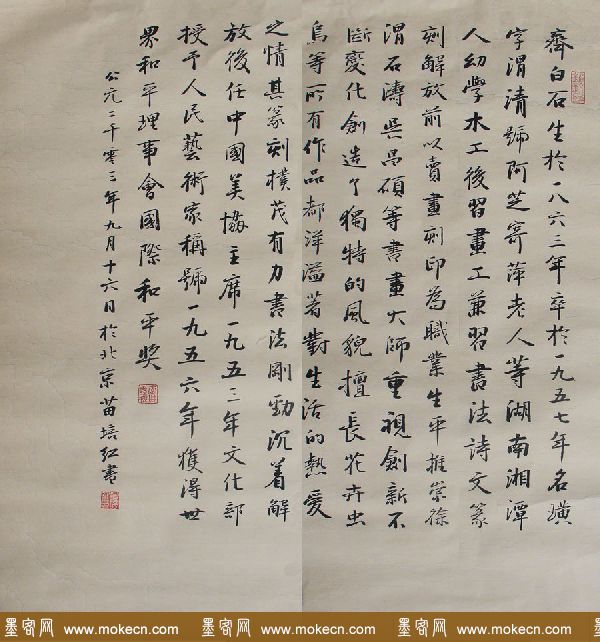 齊白石生於一八六三年卒於一九五七年名璜
字渭清號阿芝寄萍老人等湖南湘潭
人幼學木工後習畫工兼習書法詩文篆
刻解放前以賣畫刻印為職業生平推崇徐
渭石濤吳昌碩等書畫大師重視創新不
斷變化創造了獨特的風貌擅長花卉虫
鳥等所有作品都洋溢著對生活的熱愛
之情其篆刻樸茂有力書法剛勁沉着解
放後任中國美協主席一九五三年文化部
授予人民藝術家稱號一九五六年獲得世
界和平理事會國際和平獎
公元二千零三年九月十六日於北京苗培紅書
墨客网 www.mokecn.com 墨客网 www.mokecn.com 墨客网 www.mokecn.com